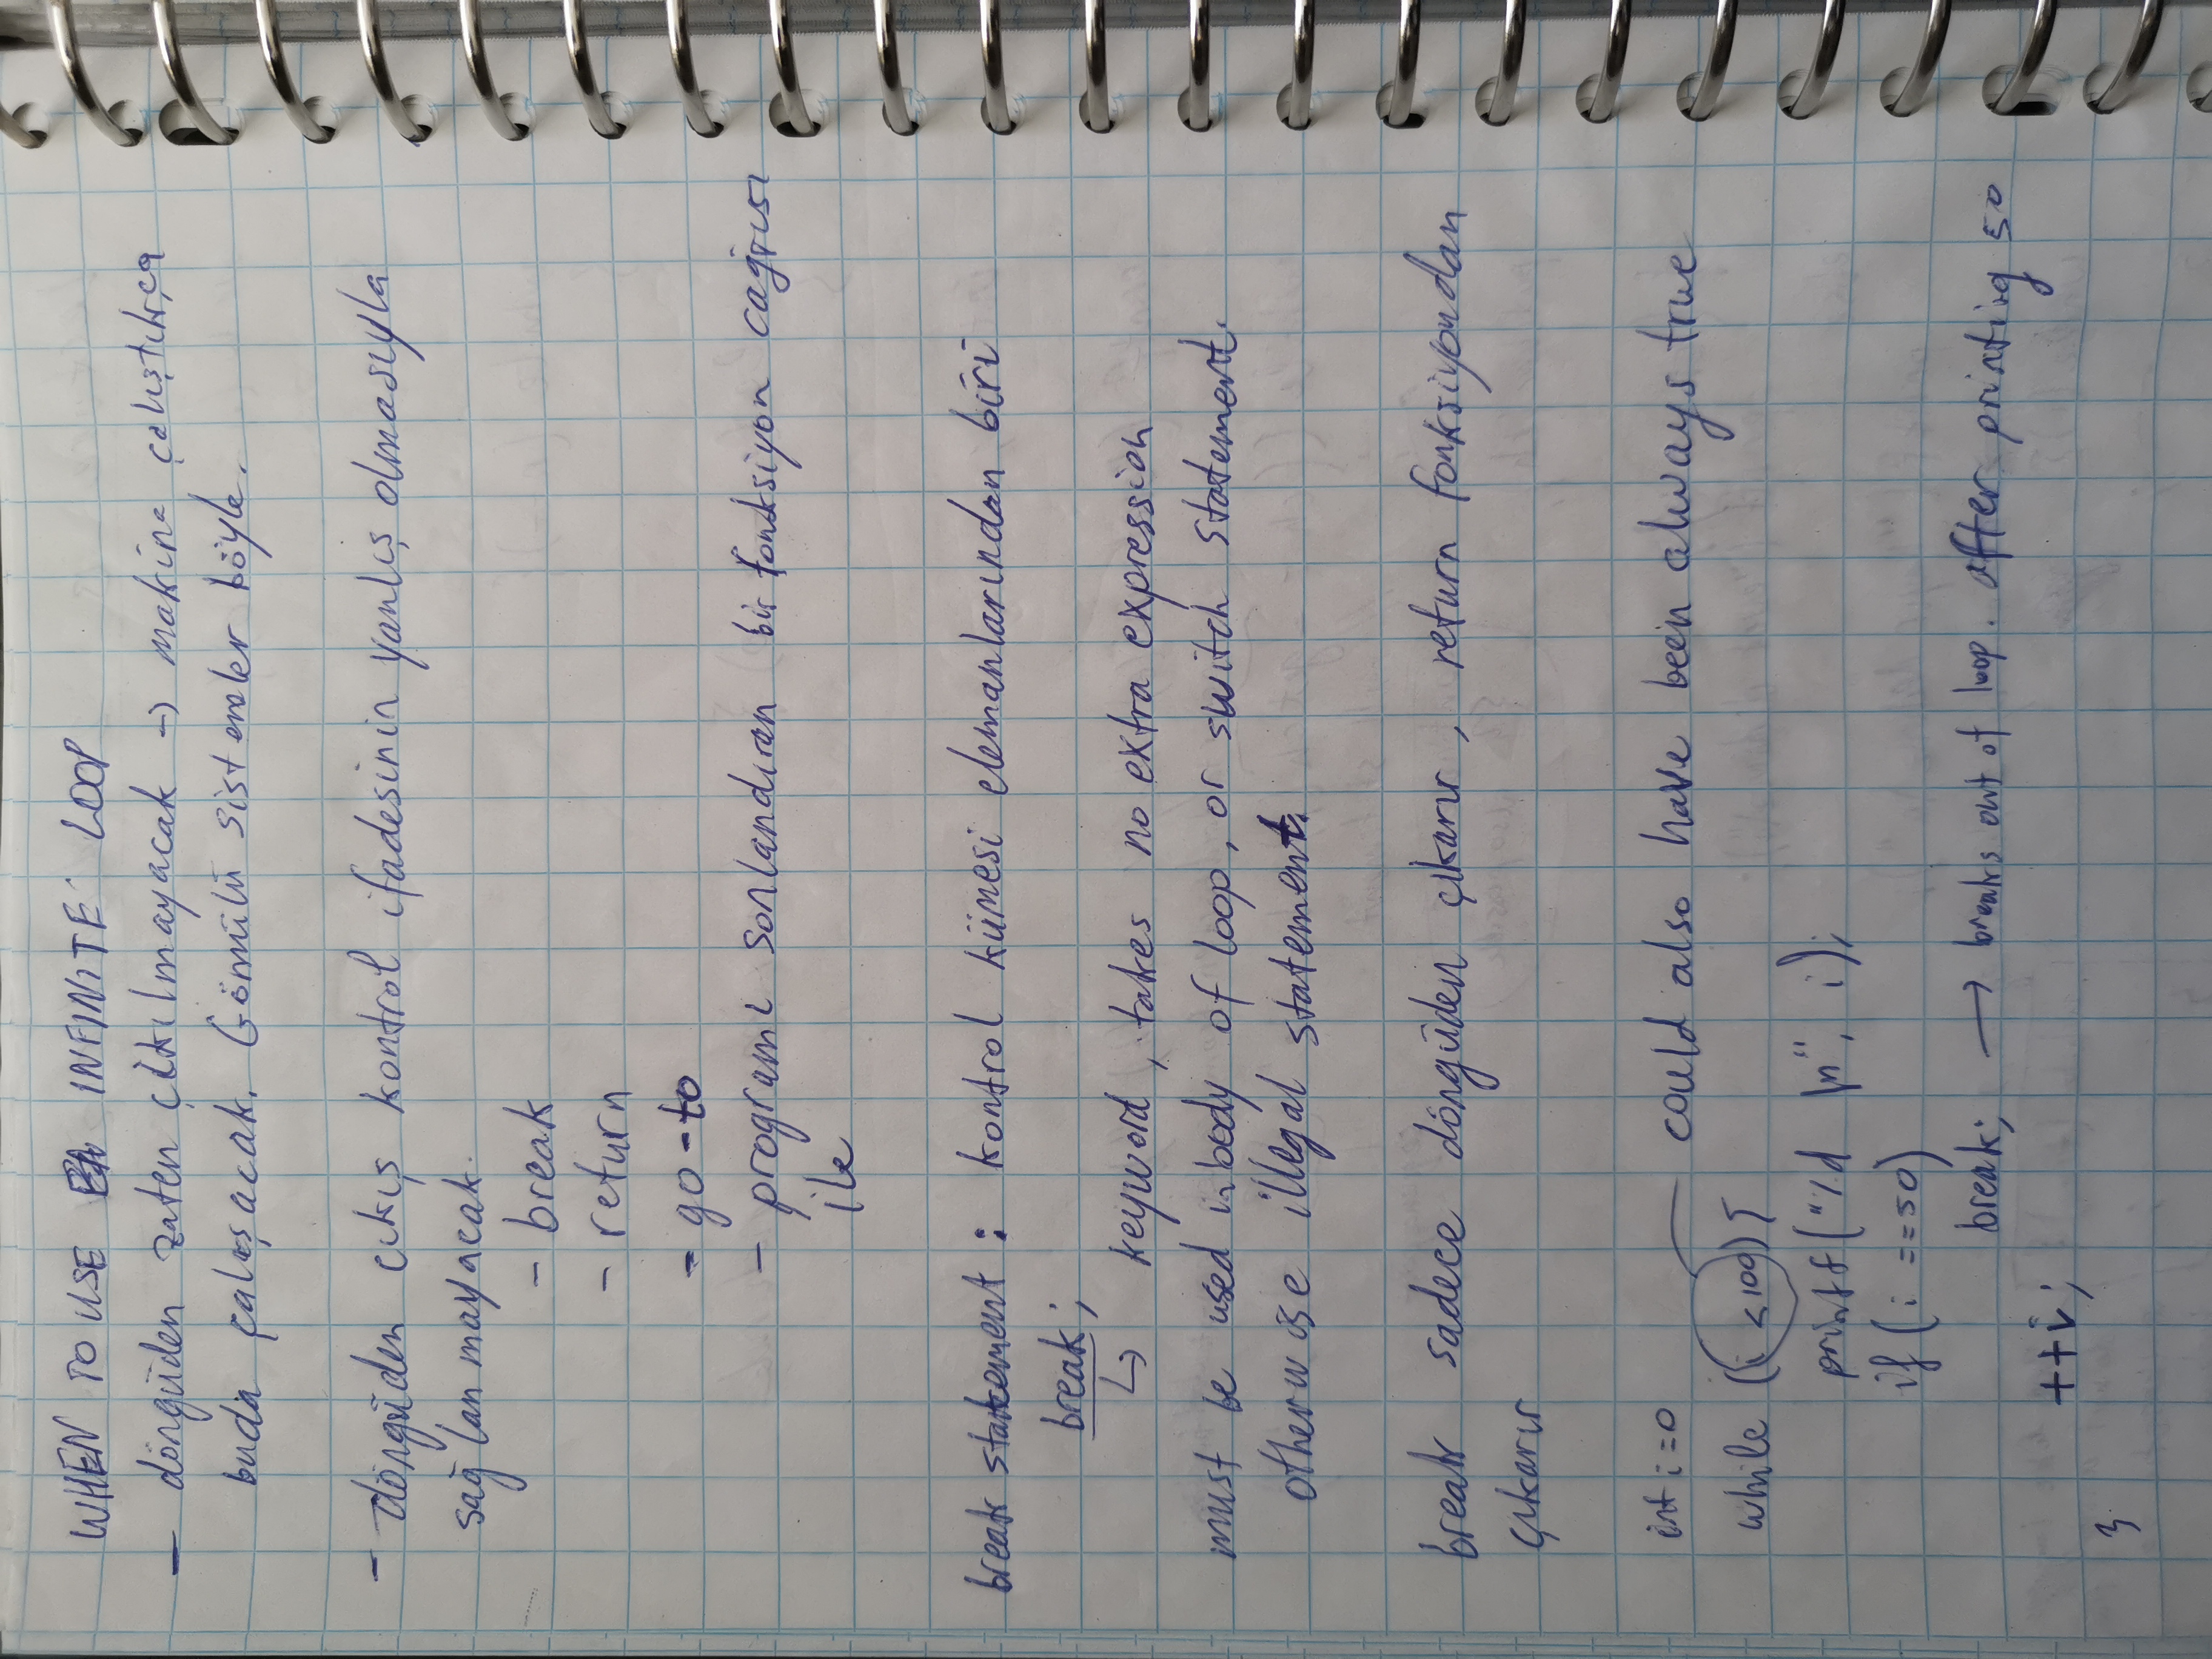 WHEN TO USE INFINITE LOOP
- döngüden zaten çıkılmayacak -> makine çalıştıkça
buda çalışacak. Gömülü sistemeler böyle.
- döngüden cıkış kontrol ifadesinin yanlış olmasıyla
sağlanmayacak.
- break
- return
- go-to
- programı sonlandıran bir fonksiyon cağrısı
ile
break statement : kontrol kümesi elemanlarından biri
break;
↳ keyword, takes no extra expression
must be used in body of loop, or switch statement.
otherwise illegal statement.
break sadece döngüden çıkarır, return fonksiyondan
çıkarır
int i=0 — could also have been always true
while (i <100) {
printf("%d \n", i);
if (i ==50)
break; -> breaks out of loop. after printing 50
++i;
}